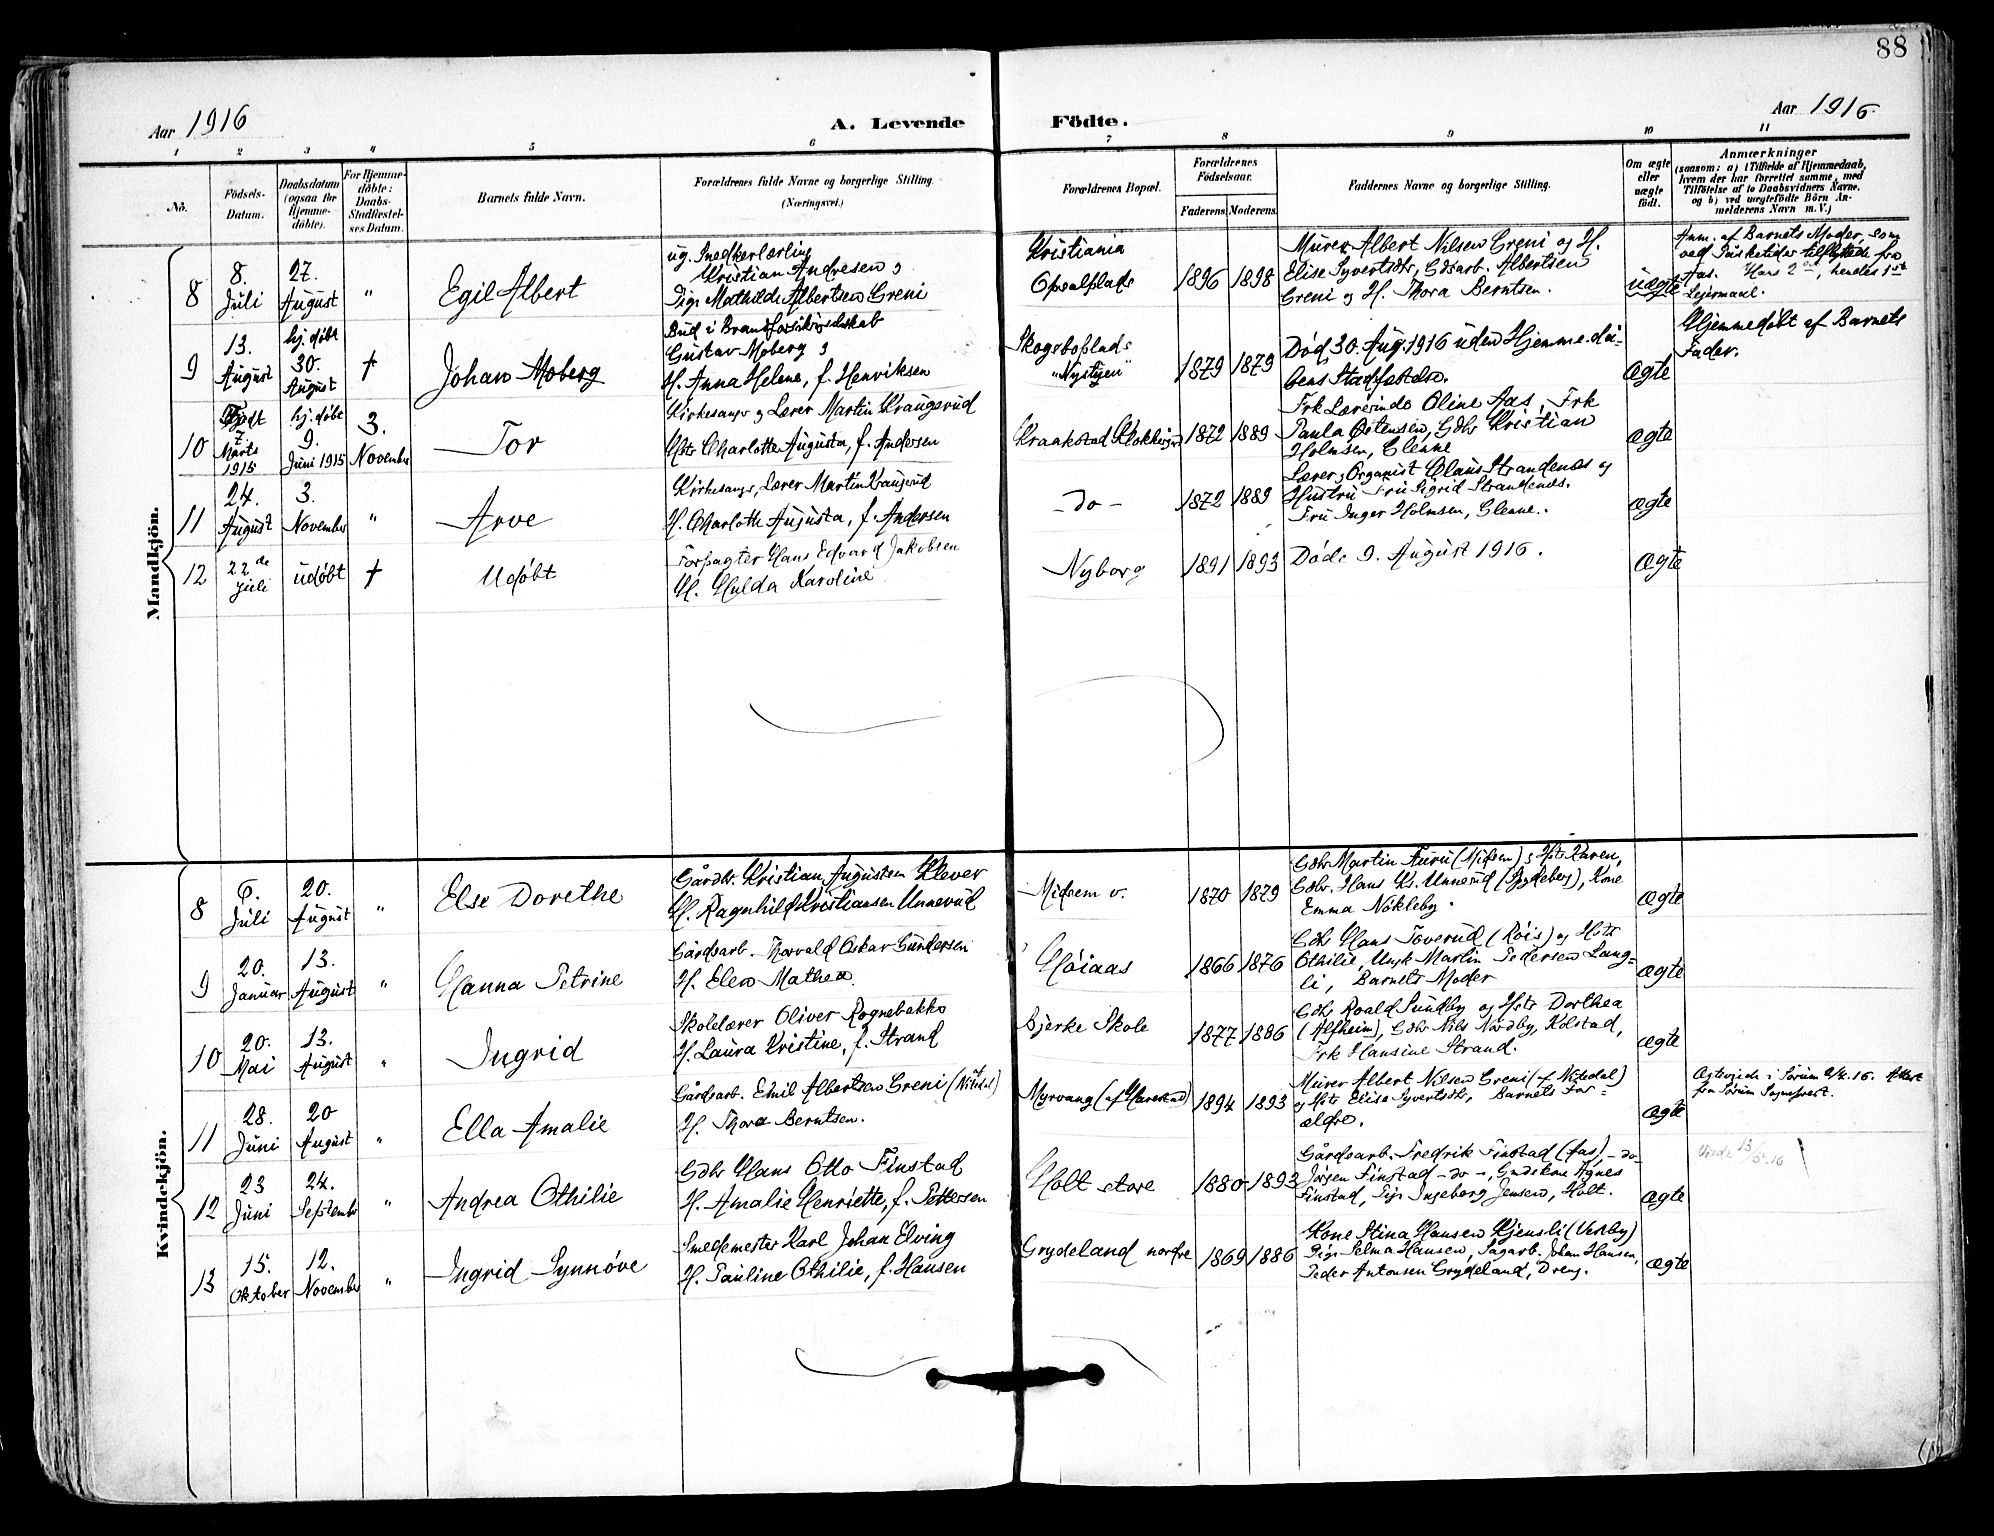 88
Aar 1916
A. Levende
Födte.
Aar 1916.
1 2 3 4 5 6 7 8 9 10 11
No.
Födsels-
Datum.
Daabsdatum
(ogsaa for
Hjemme-
döbte).
For Hjemme-
döbte:
Daabs-
Stadfæstel-
ses Datum.
Barnets fulde Navn.
Forældrenes fulde Navne og borgerlige Stilling.
(Næringsvei.)
Forældrenes Bopæl.
Forældrenes
Födselsaar.
Faderens. Moderens.
Faddernes Navne og borgerlige Stilling.
Om ægte
eller
uægte
födt.
Anmærkninger
(saasom: a) i Tilfælde af Hjemmedaab,
hvem der har forrettet samme, med
Tilföielse af to Daabsvidners Navne.
og b) ved uægtefödte Börn An-
melderens Navn m.V.)
Mandkjön.
8
8.
Juli
27.
August
"
Egil Albert
ug. Snedkerlærling
Kristian Andresen &
Pige Mathilde Albertsen Greni
Kristiania
Opsalplads
1896 1898
Murer Albert Nilsen Greni og H.
Elise Syvertsdtr, Gdsarb. Albertsen
Greni og H. Thora Berntsen.
uægte
Anm. af Barnets Moder, som
ved Påsketider tilflyttede fra
Aas. Hans 2det, hendes 1ste
Lejermaal.
9
13.
August
hj. døbt
30.
August
†
Johan Moberg
Bud i Brandforsikringsselskab
Gustav Moberg &
H. Anna Helene, f. Henriksen
Skogsboplads
"Nystuen"
1879 1879
Død 30. Aug. 1916 uden Hjemmedå-
bens Stadfæstelse.
ægte
Hjemmedøbt af Barnets
Fader.
10
Født
7.
Marts
1915
hj. døbt
9.
Juni 1915
3.
November
Tor
Kirkesanger & Lærer Martin Kraugerud
Hstr Charlotte Augusta, f. Andersen
Kraakstad Klokkergård
1872 1889
Frk Lærerinde Oline Aas, Frk
Paula Østensen, Gdbr Kristian
Holmsen, Glenne
ægte
11
24.
August
3.
November
"
Arve
Kirkesanger, Lærer Martin Kraugerud
H. Charlotte Augusta, f. Andersen
- do -
1872 1889
Lærer & Organist Claus Strandenæs og
Hustru Fru Sigrid Strandenæs.
Fru Inger Holmsen, Glenne.
ægte
12
22de
Juli
udøbt
†
Udøbt
Forpagter Hans Edvard Jakobsen
H. Hulda Karoline
Nyborg
1891 1893
Døde 9. August 1916.
ægte
Kvindekjön.
8
6.
Juli
20.
August
"
Else Dorethe
Gårdbr. Kristian Augustsen Klever
H. Ragnhild Kristiansen Unnerud
Midsem v.
1870 1879
Gdbr Martin Furu (Midsem) & Hstr Karen,
Gdbr. Hans Kr. Unnerud (Spydeberg), Kone
Emma Nökleby.
ægte
9
20.
Januar
13.
August
"
Hanna Petrine
Gårdsarb. Thorvald Oskar Gundersen
H. Elen Mathea.
Høiaas
1866 1876
Gdbr Hans Toverud (Røis) og Hstr
Othilie, Ungk Martin Pedersen Lang-
li, Barnets Moder
ægte
10
20.
Mai
13.
August
"
Ingrid
Skolelærer Oliver Rognebakke
H. Laura Kristine, f. Strand
Bjerke Skole
1877 1886
Gdbr Roald Sundby og Hstr Dorthea
(Alfheim), Gdbr Nils Nordby, Kolstad,
Frk Hansine Strand.
ægte
11
28.
Juni
20
August
"
Ella Amalie
Gårdsarb. Emil Albertsen Greni (Nitedal)
H. Thora Berntsen.
Myrvang (af )
1894 1893
Murer Albert Nilsen Greni (af Nitedal)
og Hstr Elise Syvertsdtr, Barnets For-
ældre.
ægte
i Sørum 16. Attest
fra Sørum Sogneprest.
12
23
Juni
24.
September
"
Andrea Othilie
Gdbr Hans Otto Finstad
H. Amalie Henriette, f. Pettersen
Holt store
1880 1893
Gårdsarb. Fredrik Finstad (Aas), - do -
Jørgen Finstad - do -, Gmdskone Agnes
Finstad, Pige Ingeborg Jensen, Holt.
ægte
13
15.
Oktober
12.
November
"
Ingrid Synnøve
Smedemester Karl Johan Elving
H. Pauline Othilie, f. Hansen
Grydeland nordre
1869 1886
Kone Stina Hansen Kjensli (Vestby)
Pige Selma Hansen, Sagarb. Johan Hansen,
Peder Antonsen Grydeland, Dreng.
ægte